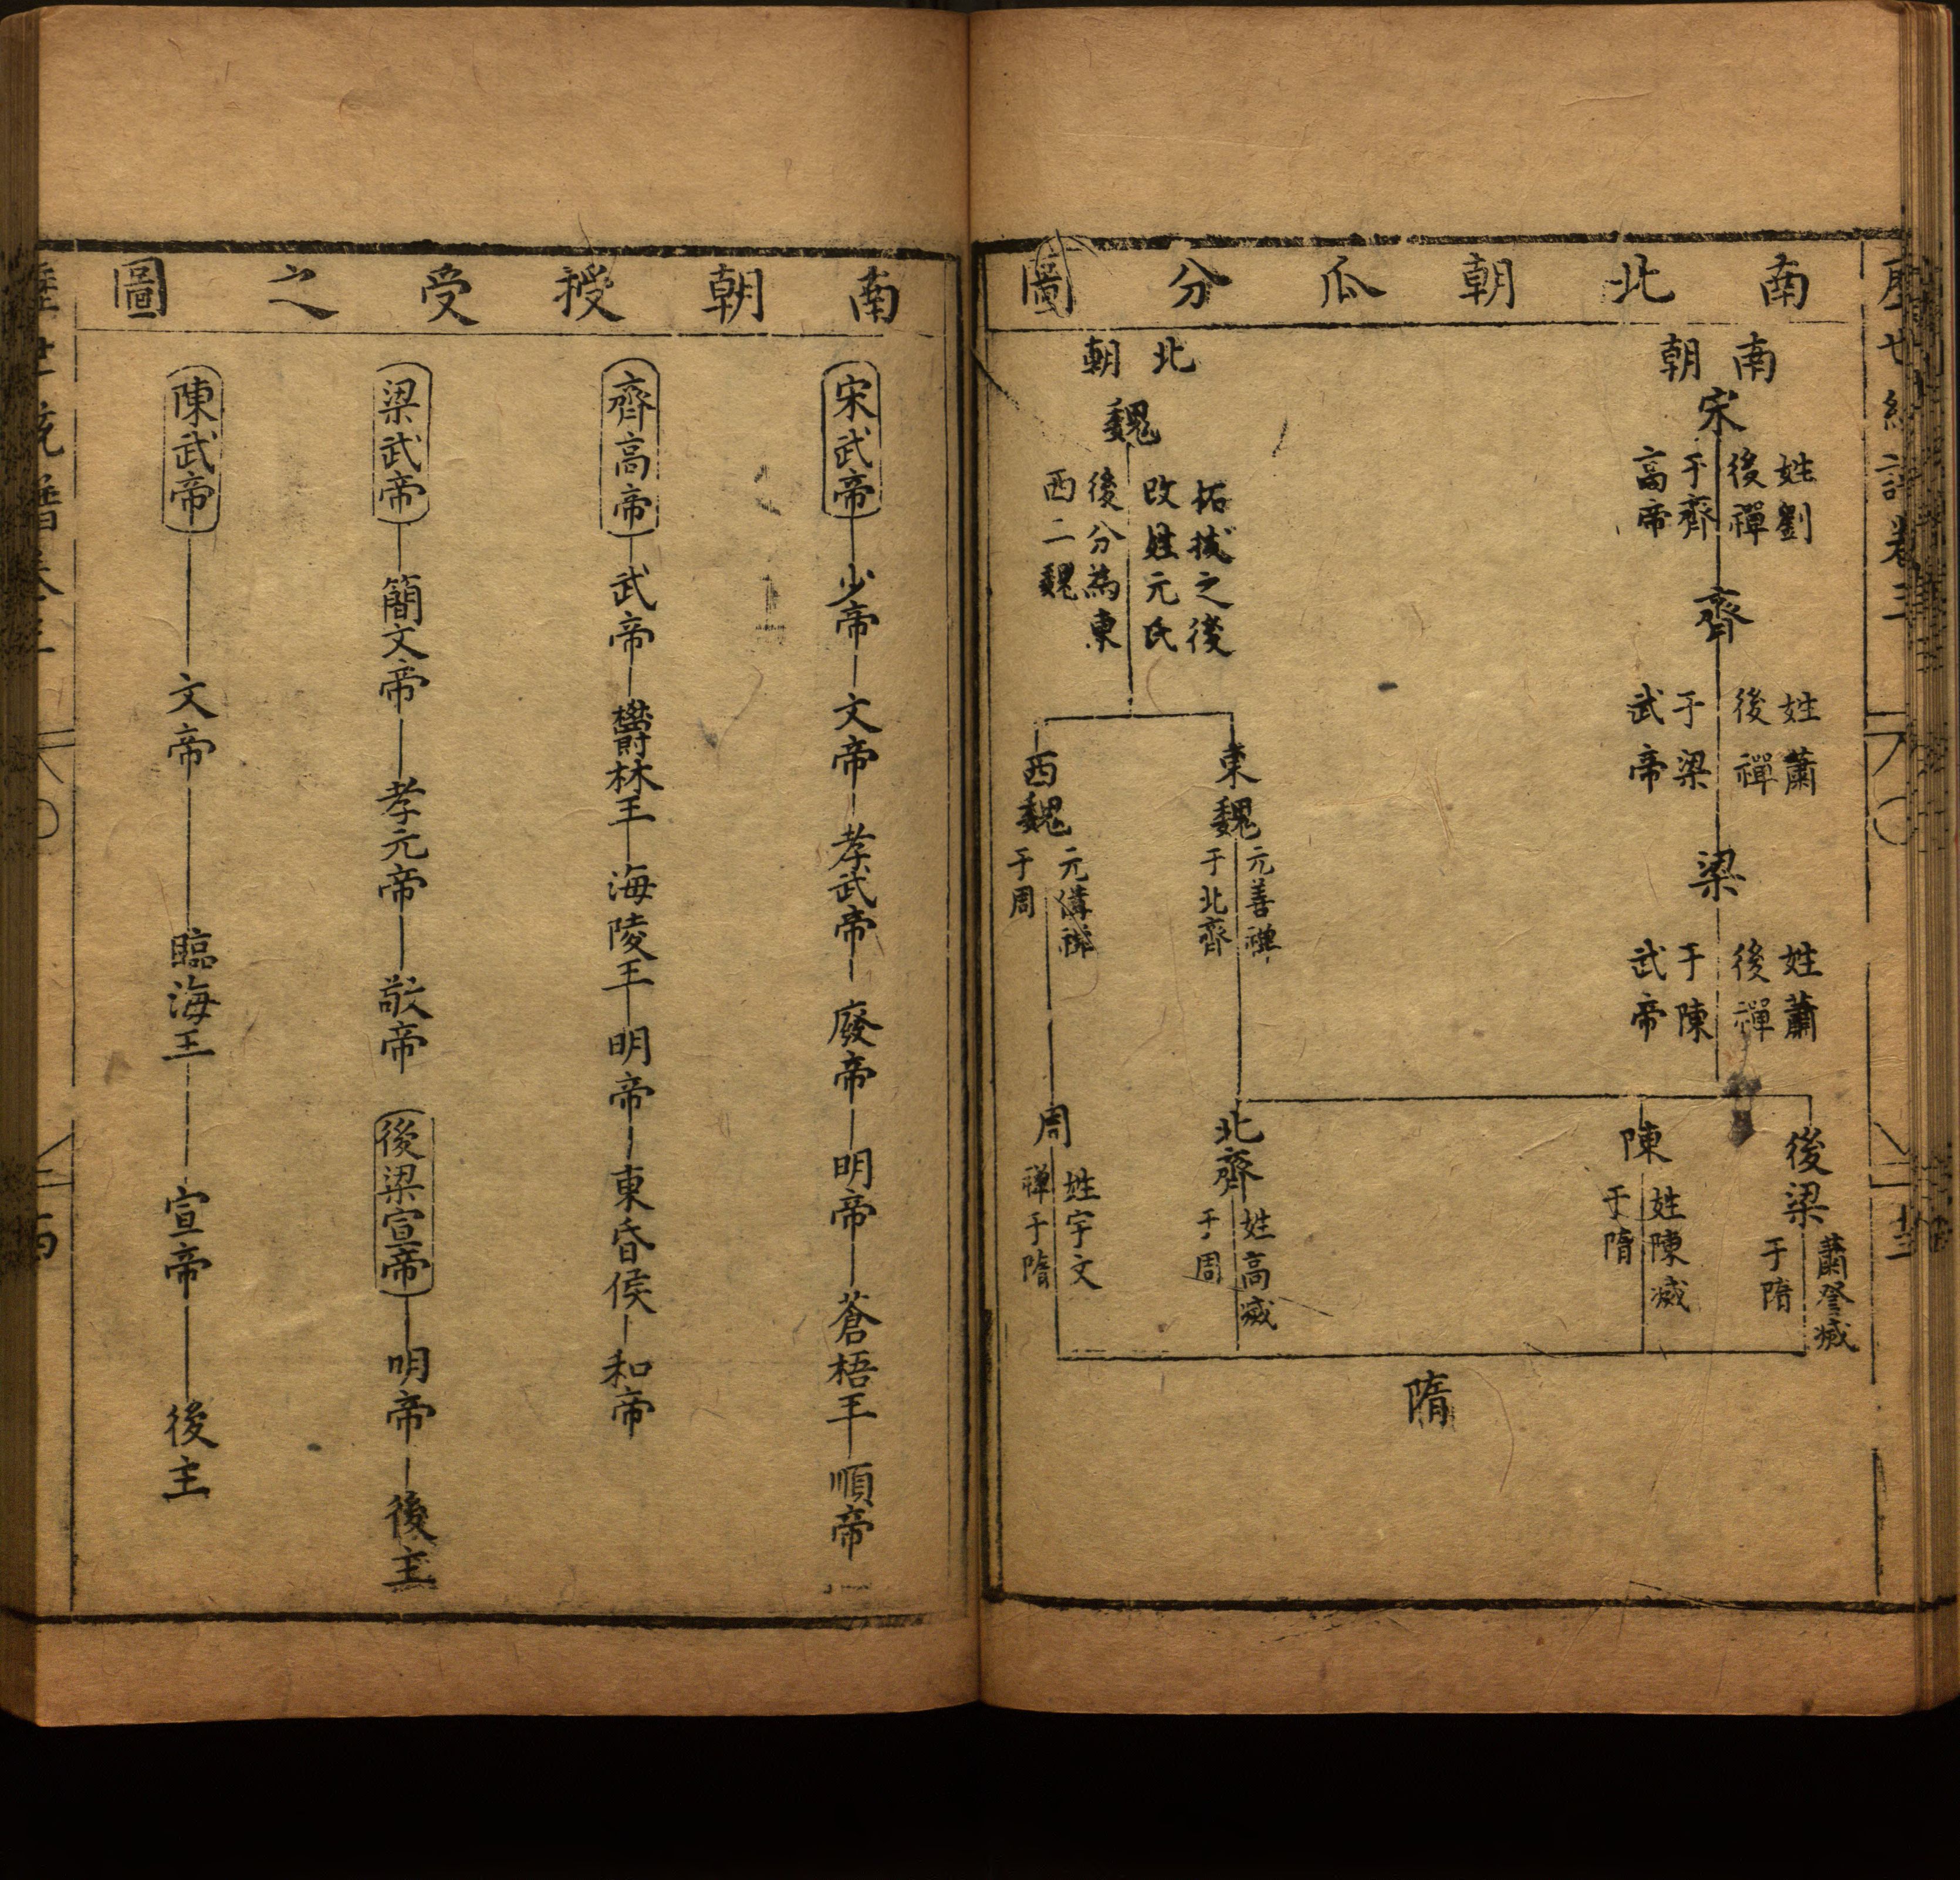 南北朝瓜分圖
南朝
宋
姓劉
後禪
于齊
高帝
齊
姓蕭
後禪
于梁
武帝
梁
姓蕭
後禪
于陳
武帝
後梁
蕭詧滅
于隋
陳
姓陳滅
于隋
北朝
魏
拓拔之後
改姓元氏
後分為東
西二魏
東魏
元善禅
于北齊
西魏
于周
北齊
姓高滅
于周
周
姓宇文
禅于隋
隋
南朝授受之圖
宋武帝 少帝 文帝 孝武帝 廢帝 明帝 蒼梧王 順帝
齊高帝 武帝 欝林王 海陵王 明帝 東昏侯 和帝
梁武帝 簡文帝 孝元帝 敬帝 後梁宣帝 明帝 後主
陳武帝 文帝 臨海王 宣帝 後主